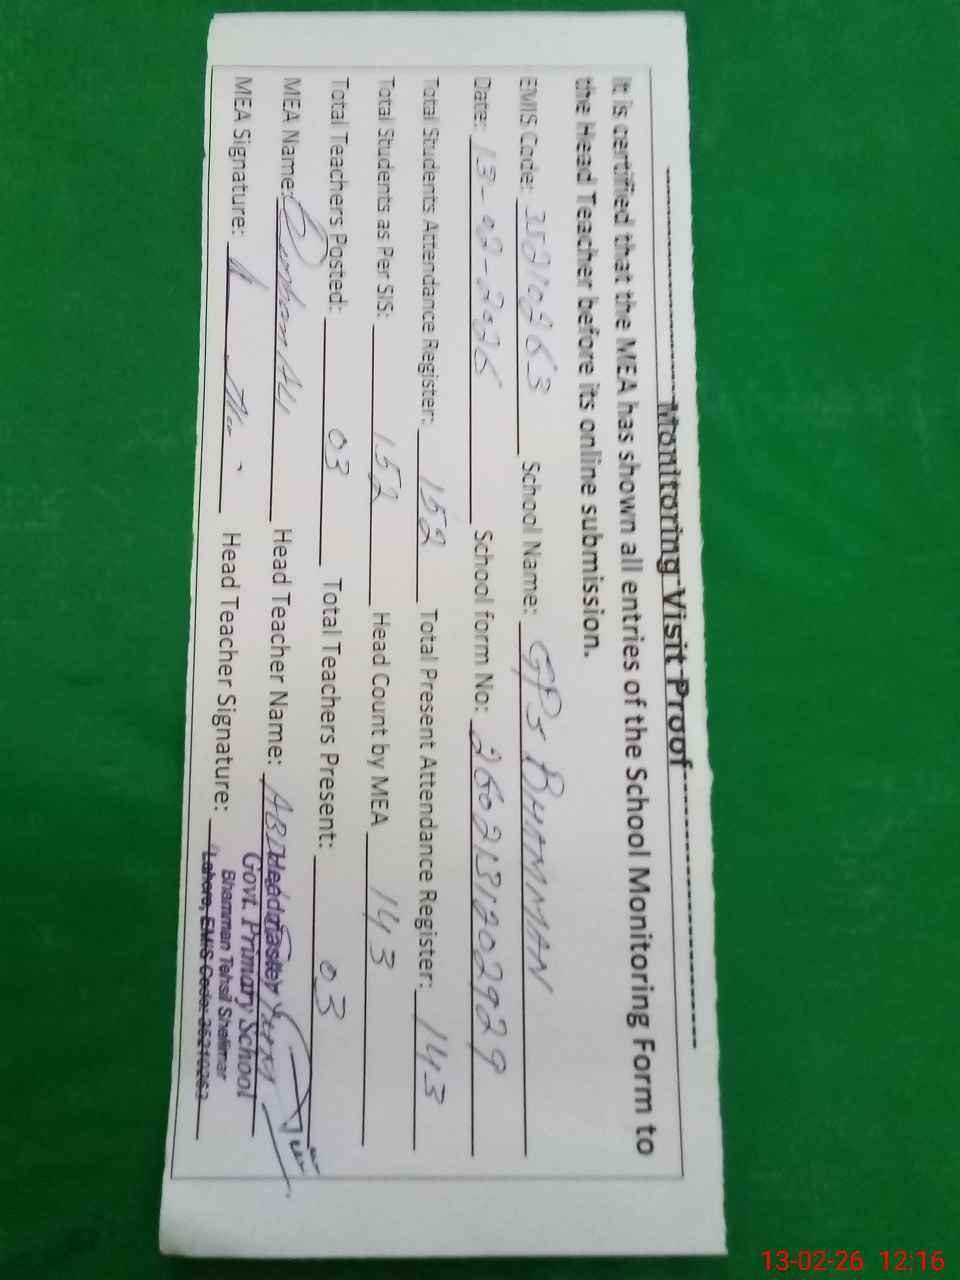 Monitoring Visit Proof
It is certified that the MEA has shown all entries of the School Monitoring Form to
the Head Teacher before its online submission.
EMIS Code: 35210263 School Name: GPS BHAMMAN
Date: 13-02-2026 School form No: 2602131202929
Total Students Attendance Register: 152 Total Present Attendance Register: 143
Total Students as Per SIS: 152 Head Count by MEA 143
Total Teachers Posted: 03 Total Teachers Present: 03
MEA Name: Ali Head Teacher Name:
MEA Signature: Head Teacher Signature:
Headmaster
Govt. Primary School
Bhamman Tehsil Shalimar
Lahore, EMIS Code: 35210263
13-02-26 12:16